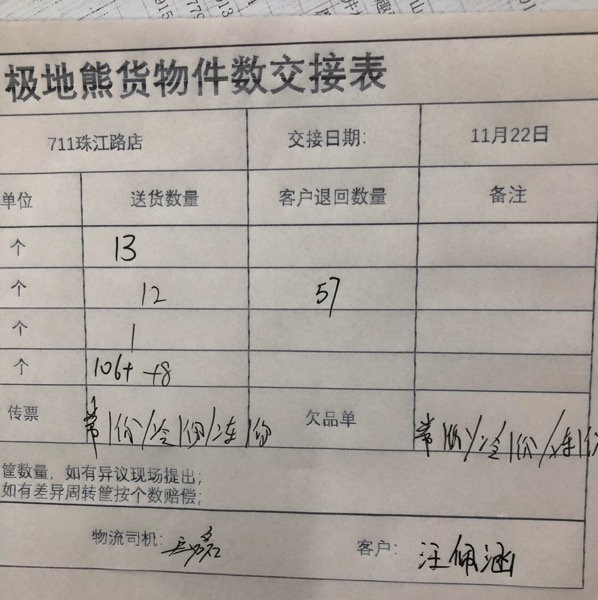 极地熊货物件数交接表
711珠江路店 交接日期: 11月22日
单位 送货数量 客户退回数量 备注
个 13
个 12 57
个 1
个 106+ +8
传票 常1份/冷1份/冻1份 欠品单 常1份/冷1份/冻1份
筐数量，如有异议现场提出;
如有差异周转筐按个数赔偿;
物流司机: 客户: 汪佩涵